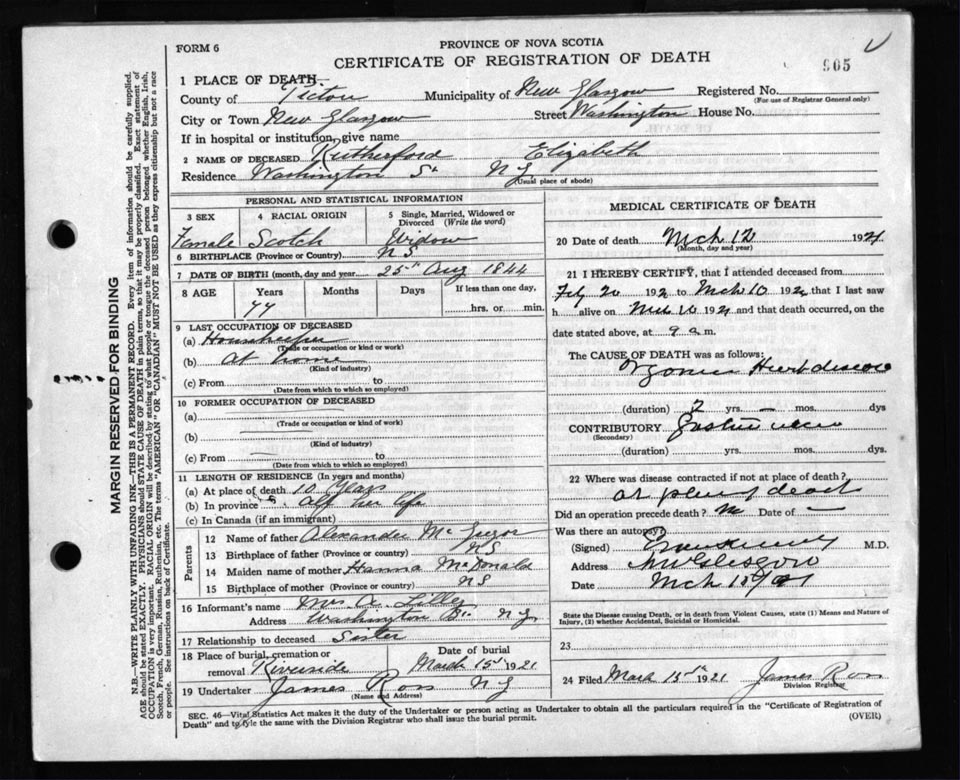 FORM 6
PROVINCE OF NOVA SCOTIA
CERTIFICATE OF REGISTRATION OF DEATH
905
1 PLACE OF DEATH—
County of Pictou Municipality of New Glasgow Registered No.
(For use of Registrar General only)
City or Town New Glasgow Street Washington House No.
If in hospital or institution, give name
2 NAME OF DECEASED Rutherford Elizabeth
Residence Washington St N G
(Usual place of abode)
PERSONAL AND STATISTICAL INFORMATION
3 SEX 4 RACIAL ORIGIN 5 Single, Married, Widowed or Divorced (Write the word)
Female Scotch Widow
6 BIRTHPLACE (Province or Country) N S
7 DATE OF BIRTH (month, day and year) 25th Aug 1844
8 AGE Years Months Days If less than one day,
77 hrs. or min.
9 LAST OCCUPATION OF DECEASED
(a) Housekeeper
(Trade or occupation or kind or work)
(b) At home
(Kind of industry)
(c) From to
(Date from which to which so employed)
10 FORMER OCCUPATION OF DECEASED
(a)
(Trade or occupation or kind of work)
(b)
(Kind of industry)
(c) From to
(Date from which to which so employed)
11 LENGTH OF RESIDENCE (In years and months)
(a) At place of death 10 years
(b) In province All her life
(c) In Canada (if an immigrant)
Parents
12 Name of father Alexander McGregor
13 Birthplace of father (Province or country) N S
14 Maiden name of mother Hanna McDonald
15 Birthplace of mother (Province or country) N S
16 Informant's name Mrs A.
Address Washington St. N G
17 Relationship to deceased Sister
18 Place of burial, cremation or removal Riverside Date of burial March 15th 1921
19 Undertaker James Ross N G
(Name and Address)
MEDICAL CERTIFICATE OF DEATH
20 Date of death Mch 1921
(Month, day and year)
21 I HEREBY CERTIFY, that I attended deceased from
Feby 20 192 to Mch 10 192 that I last saw
h alive on Mch 10 1921 and that death occurred, on the
date stated above, at 9 a.m.
The CAUSE OF DEATH was as follows:
Organic Heart disease
(duration) 2 yrs. — mos. dys
CONTRIBUTORY
(Secondary)
(duration) yrs. mos. dys.
22 Where was disease contracted if not at place of death?
at place of death
Did an operation precede death? No Date of —
Was there an autopsy?
(Signed) M.D.
Address New Glasgow
Date Mch
State the Disease causing Death, or in death from Violent Causes, state (1) Means and Nature of Injury, (2) whether Accidental, Suicidal or Homicidal.
23
24 Filed March 15th 1921 James Ross
Division Registrar
SEC. 46—Vital Statistics Act makes it the duty of the Undertaker or person acting as Undertaker to obtain all the particulars required in the "Certificate of Registration of
Death" and to file the same with the Division Registrar who shall issue the burial permit.
(OVER)
MARGIN RESERVED FOR BINDING
N.B.—WRITE PLAINLY WITH UNFADING INK—THIS IS A PERMANENT RECORD. Every item of information should be carefully supplied.
AGE should be stated EXACTLY. PHYSICIANS should STATE CAUSE OF DEATH in plain terms, so that it may be properly classified. Exact statement of
OCCUPATION is very important. RACIAL ORIGIN will be described by stating to what people or tongue the deceased person belonged, whether English, Irish,
Scotch, French, German, Russian, Ruthenian, etc. The terms "AMERICAN" OR "CANADIAN" MUST NOT BE USED as they express citizenship but not a race
or people. See instructions on back of Certificate.